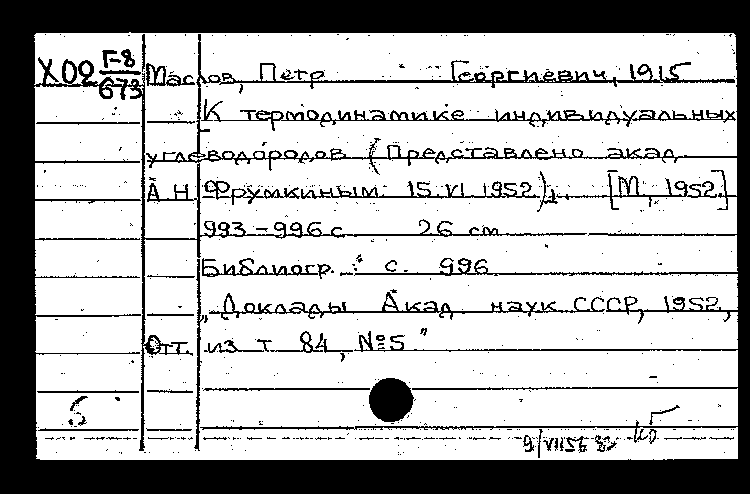 Х02 Г-8/673 Маслов, Петр Георгиевич, 1915
К термодинамике индивидуальных
углеводородов (Представлено акад.
А.Н. Фрумкиным 15.VI 1952). [М., 1952.]
993-996 с. 26 см
Библиогр.: с. 996
„Доклады Акад. наук СССР, 1952,
Отт. из т. 84, №5"
5
9/VII56